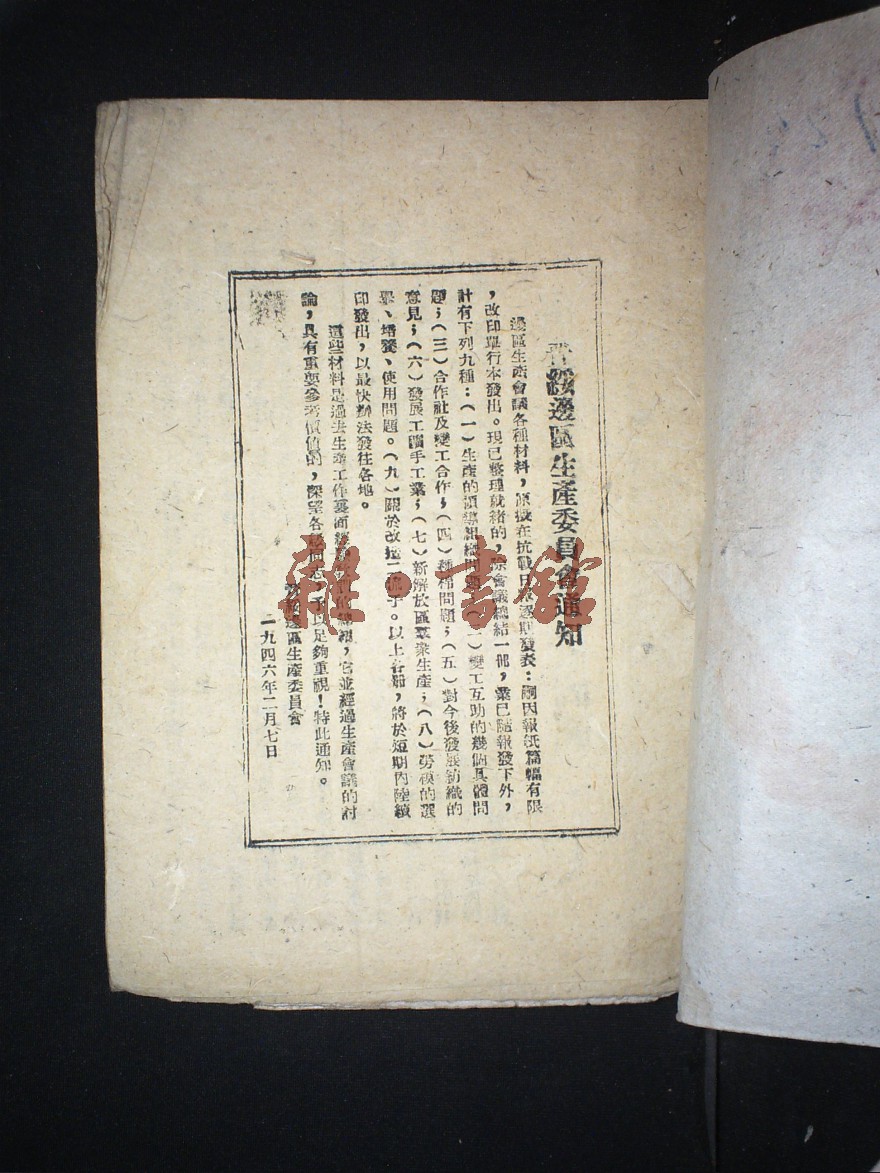 綏邊區生產委員會通知
邊區生產會議各種材料，原擬在抗戰日報逐期發表；嗣因報紙篇幅有限
，改印單行本發出。現已整理就緒的，除會議總結一冊，業已隨報發下外，
計有下列九種：（一）生產的領導組織問題；（二）變工互助的幾個具體問
題；（三）合作社及變工合作；（四）種棉問題；（五）對今後發展紡織的
意見；（六）發展工礦手工業；（七）新解放區羣衆生產；（八）勞模的選
舉、培養、使用問題。（九）關於改造二流子。以上各冊，將於短期內陸續
印發出，以最快辦法發往各地。
這些材料是過去生產工作裏面經驗的總結，它並經過生產會議的討
論，具有重要參考價值的，深望各級同志，予以足夠重視！特此通知。
綏邊區生產委員會
一九四六年二月七日
雜·書館